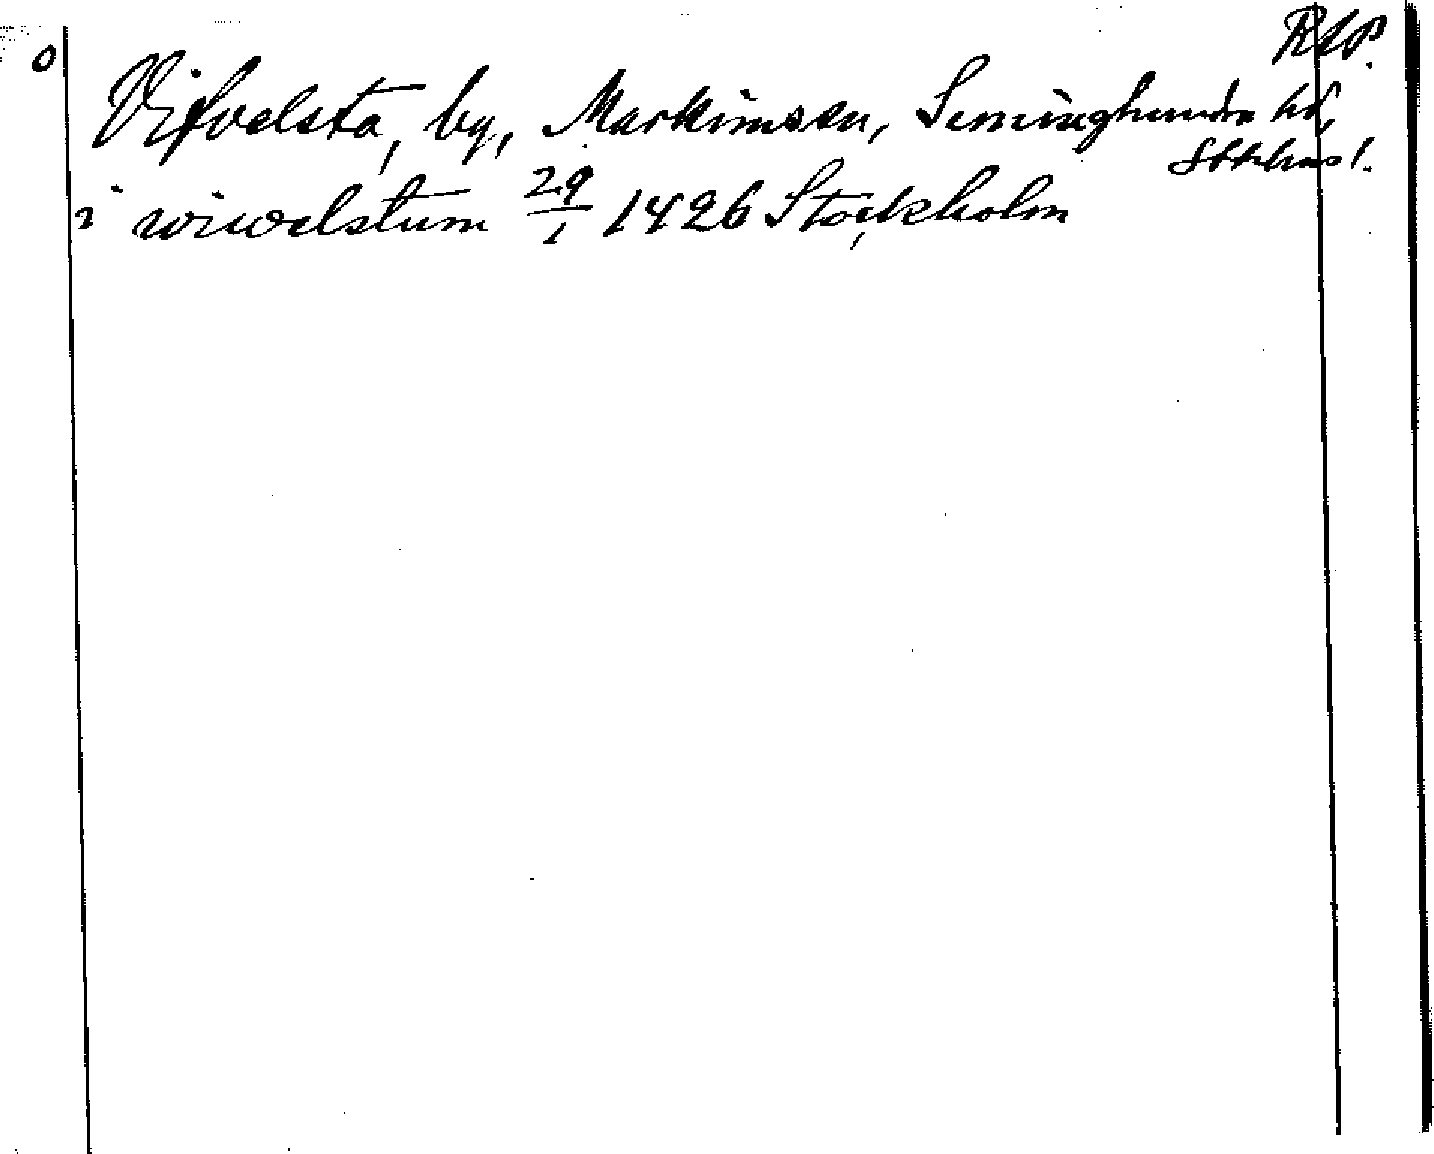 RAP.
0
Vifvelsta, by, Markims sn, Seminghundra hd,
Sthlms l.
i wiwelstum 29/1 1426 Stockholm